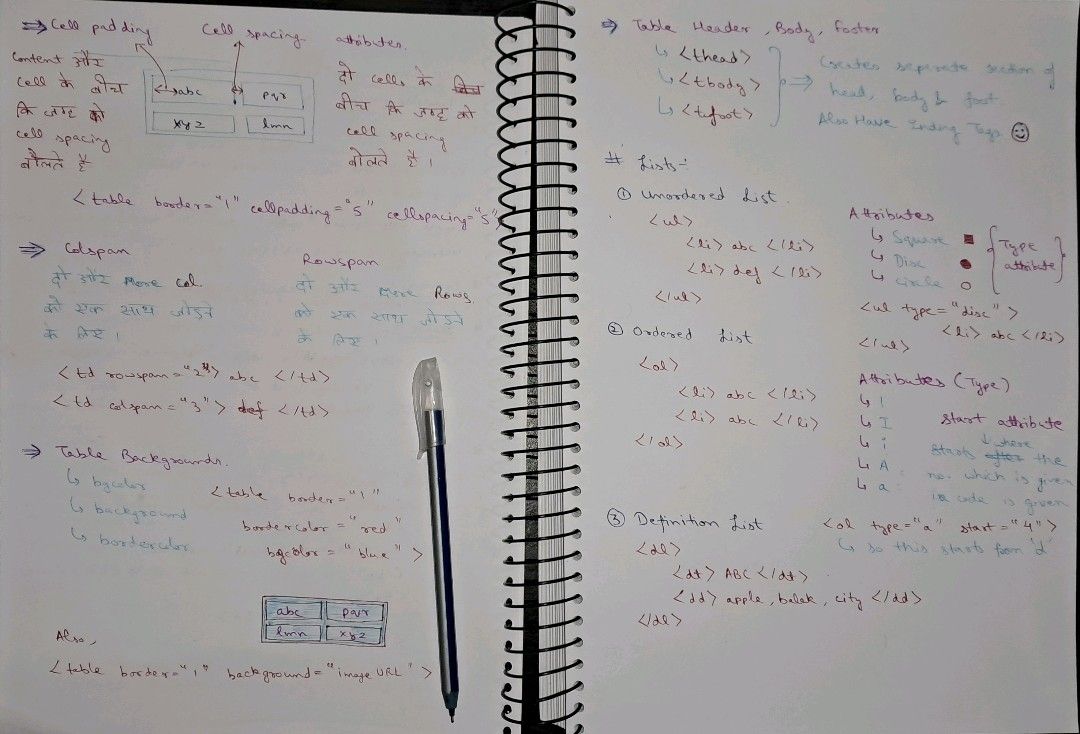 ⇒ Cell padding Cell spacing attributes.
Content और
cell के बीच
कि जगह को
cell spacing
बोलते है
abc pqr
xyz lmn
दो cells के
बीच कि जगह को
cell spacing
बोलते है ।
<table border="1" cellpadding="5" cellspacing="5">
⇒ Colspan
दो और more col
को एक साथ जोड़ने
के लिए ।
Rowspan
दो और more Rows
को एक साथ जोड़ने
के लिए ।
<td rowspan="2"> abc </td>
<td colspan="3"> def </td>
⇒ Table Backgrounds.
↳ bgcolor
↳ background
↳ bordercolor
<table border="1"
bordercolor="red"
bgcolor="blue">
abc pqr
lmn xyz
Also,
<table border="1" background="image URL">
⇒ Table Header, Body, Footer
↳ <thead>
↳ <tbody>
↳ <tfoot>
⇒ Creates seperate section of
head, body & foot.
Also Have Ending Tags ☺
# Lists:-
① Unordered List.
<ul>
<li> abc </li>
<li> def </li>
</ul>
Attributes
↳ Square ■
↳ Disc ●
↳ circle ○
{Type
attribute}
<ul type="disc">
<li> abc </li>
</ul>
② Ordered List
<ol>
<li> abc </li>
<li> abc </li>
</ol>
Attributes (Type)
↳ 1
↳ I
↳ i
↳ A
↳ a
start attribute
↓ where
starts after the
no. which is given
in code is given
<ol type="a" start="4">
↳ so this starts from 'd'
③ Definition List
<dl>
<dt> ABC </dt>
<dd> apple, balek, city </dd>
</dl>